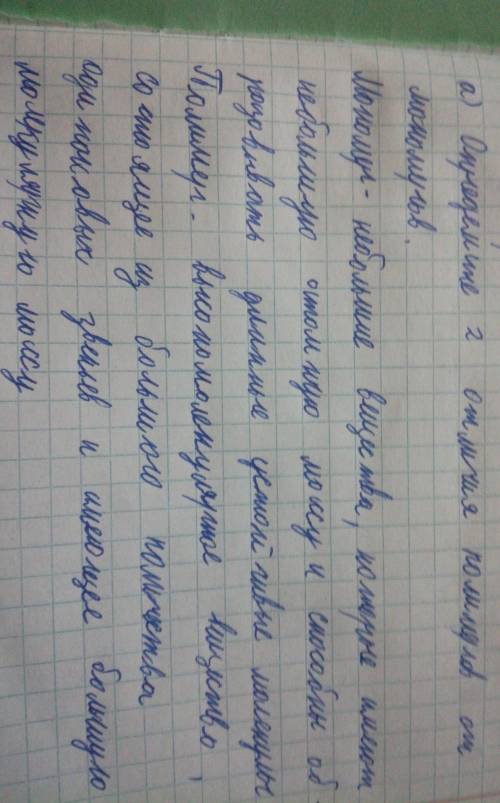 а) Определите 2 отличия полимеров от
мономеров.
Мономер - небольшие вещества, которые имеют
небольшую атомную массу и способны об
разовывать длинные устойчивые молекулы
Полимер - высокомолекулярное вещество,
состоящее из большого количества
одинаковых звеньев и имеющее большую
молекулярную массу